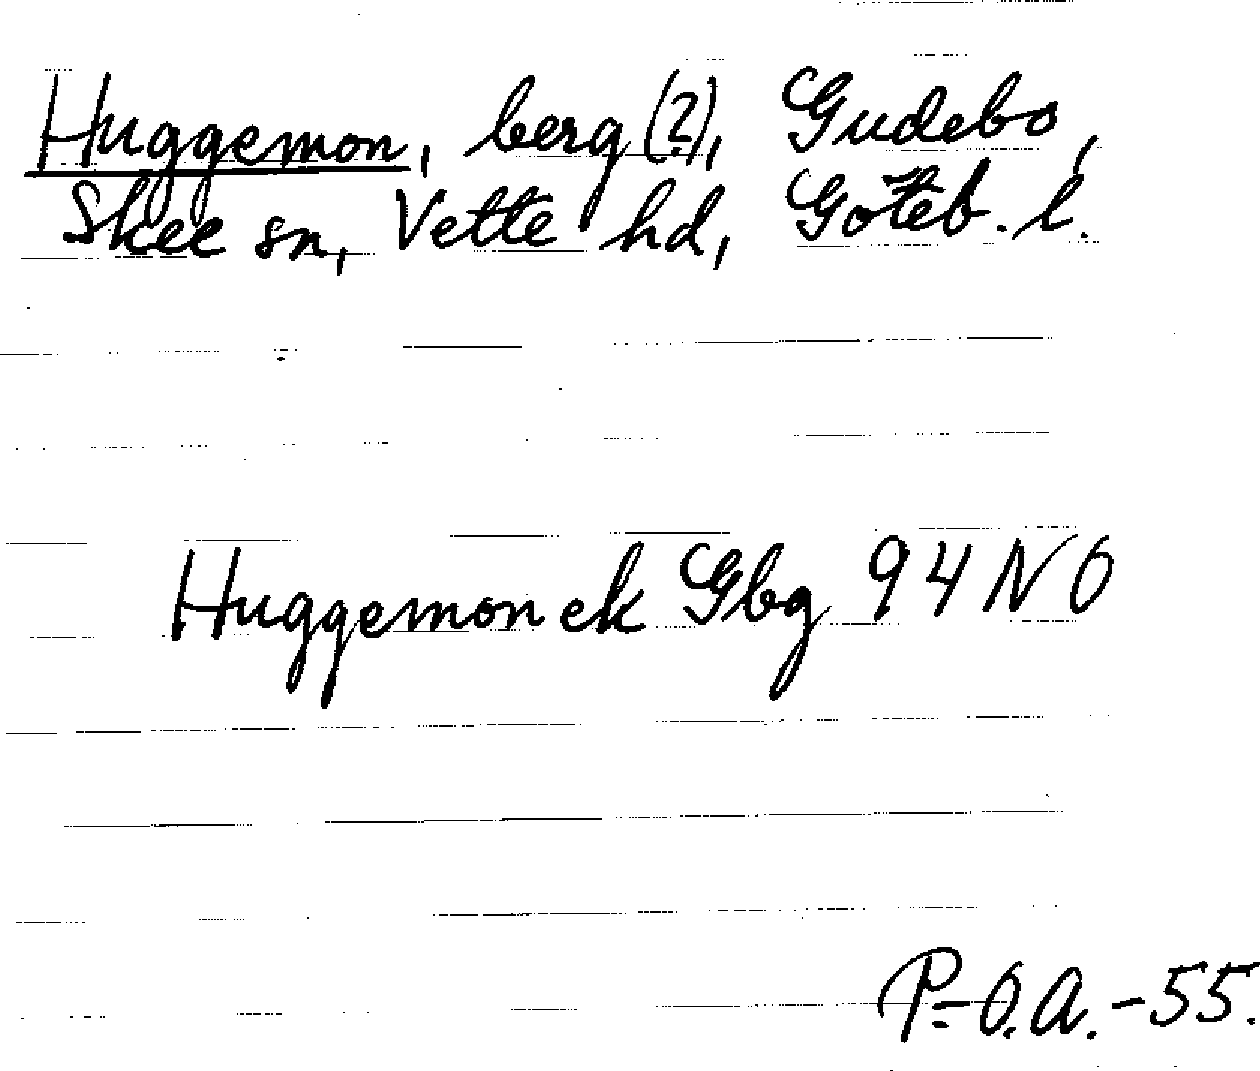 Huggemon, berg (?), Gudebo,
Skee sn, Vette hd, Göteb. l.
Huggemon ek Gbg 94 NO
P-O.A. -55.